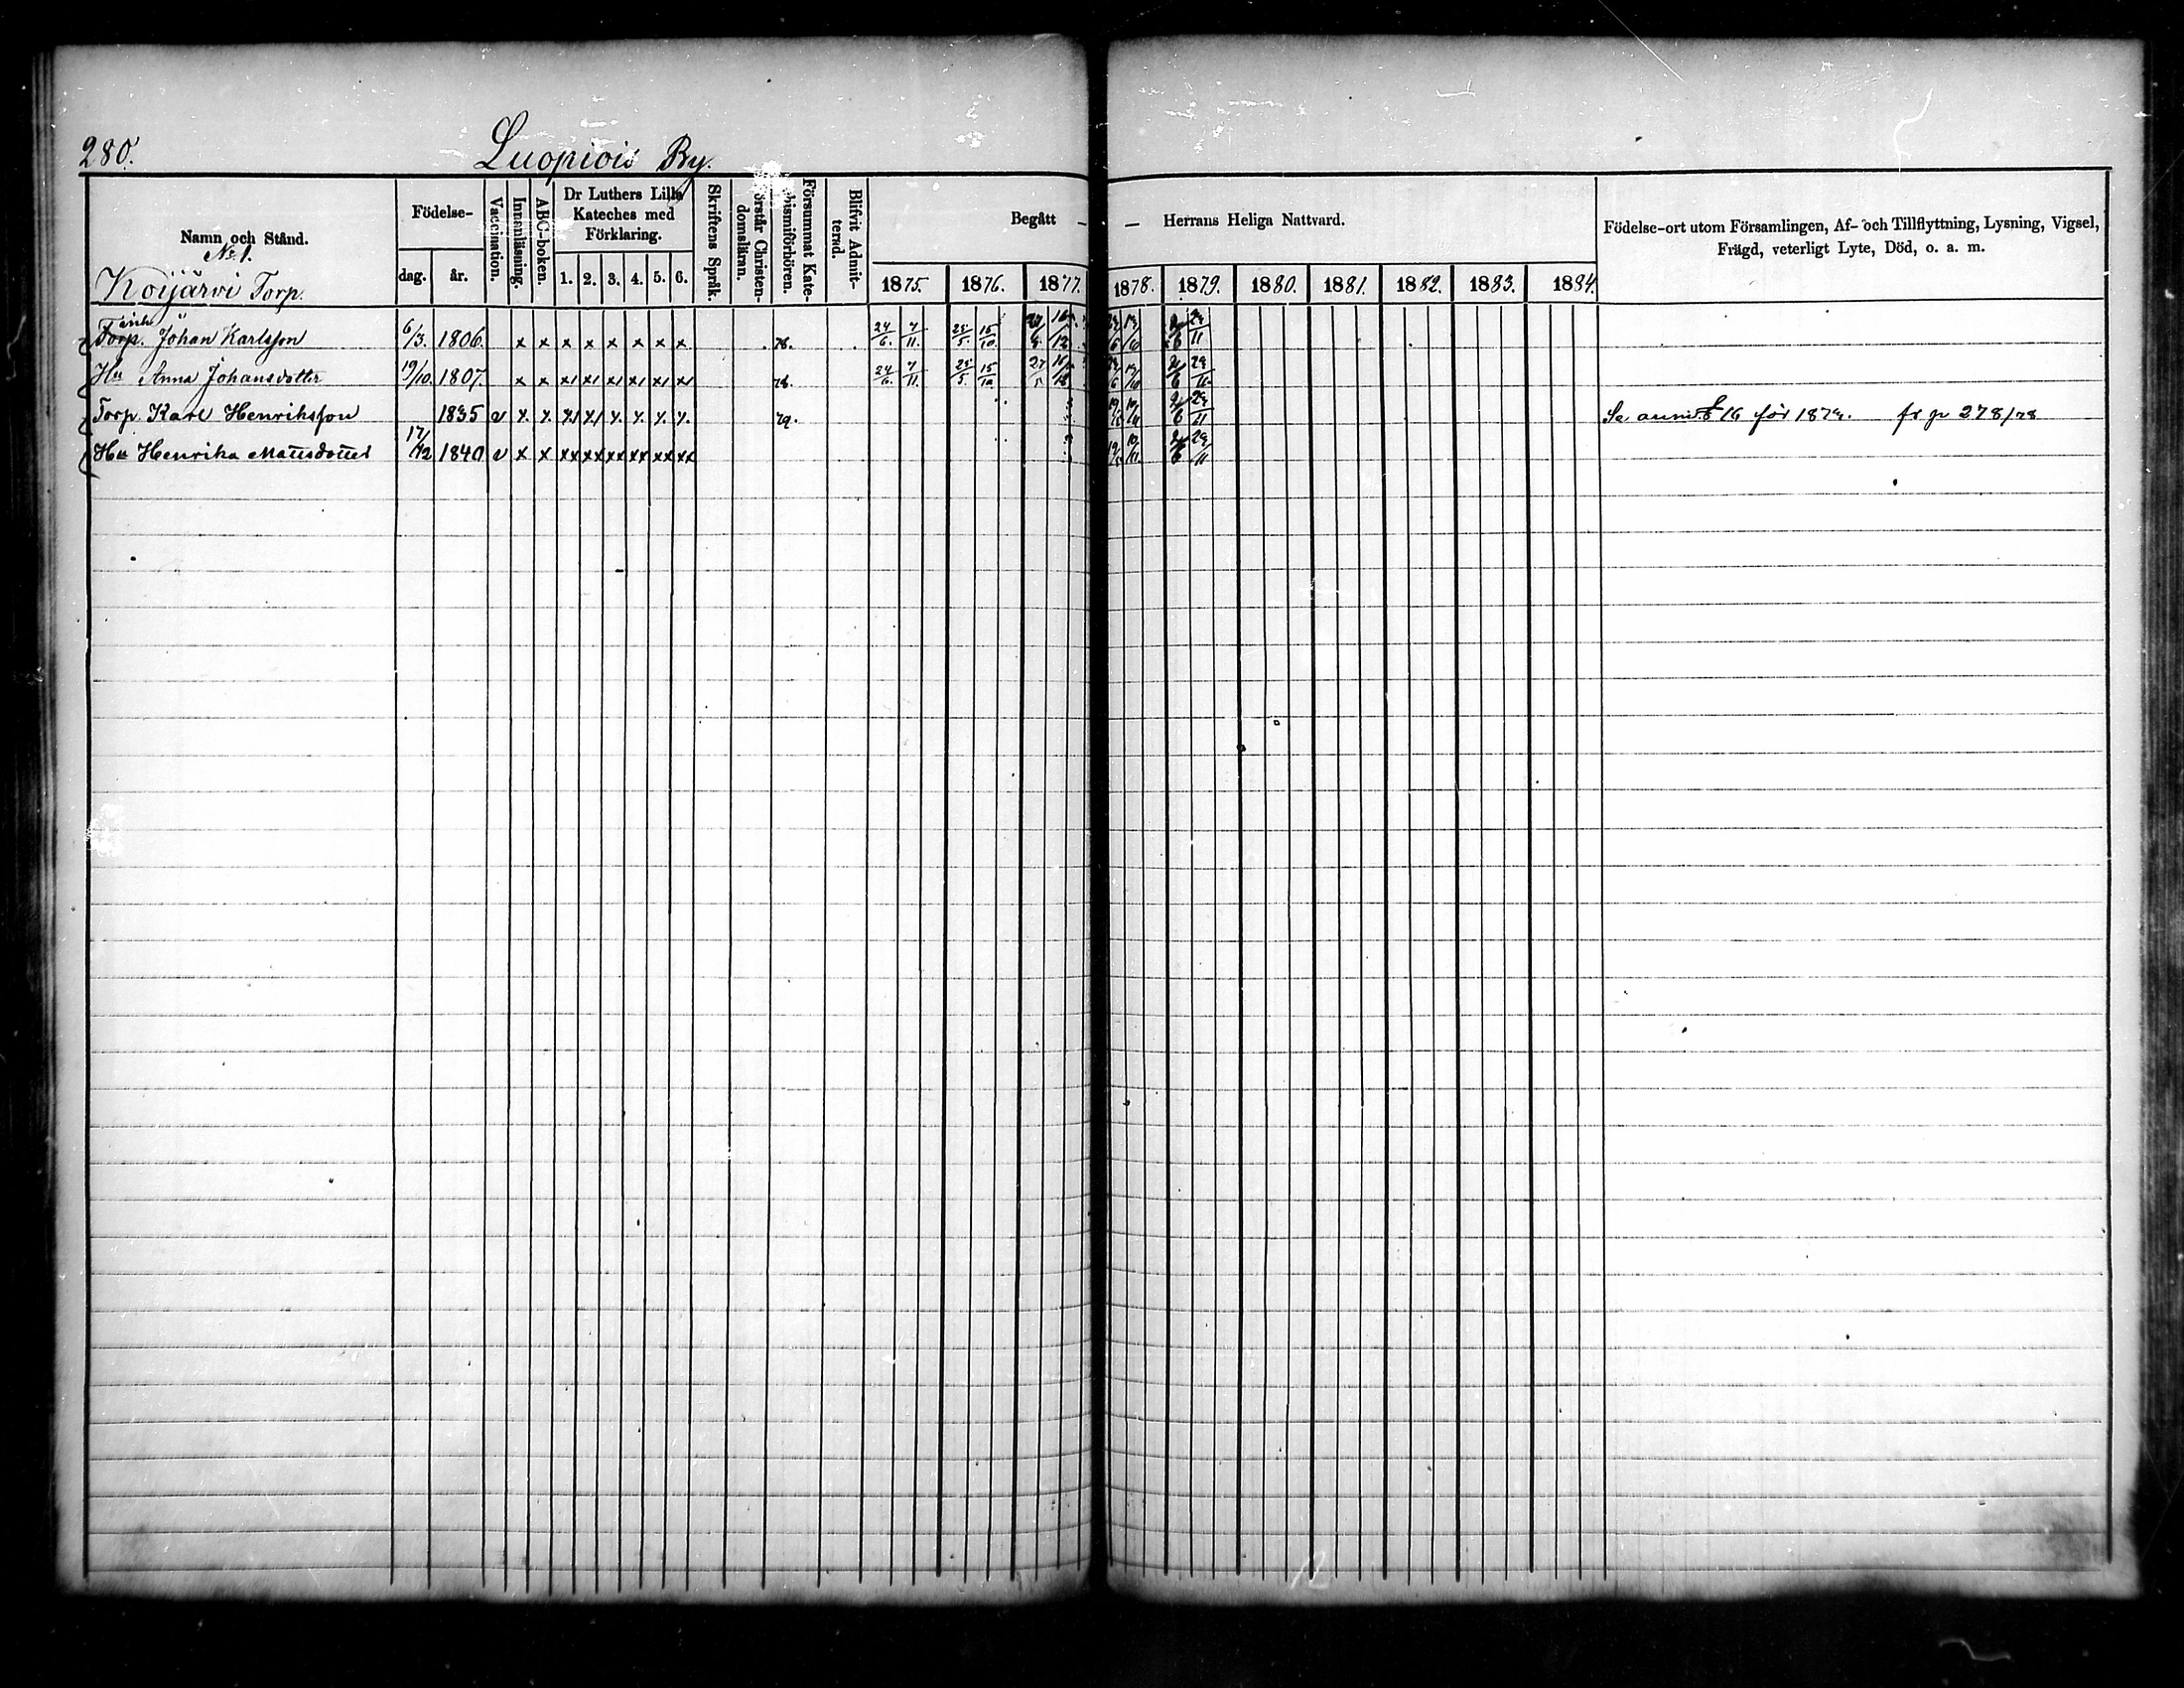 280.
Luopiois By.
Namn och Stånd.
No 1.
Koijärvi Torp.
Födelse-
dag. år.
Vaccination.
Innanläsning.
ABC-boken.
Dr Luthers Lilla Kateches med Förklaring.
1. 2. 3. 4. 5. 6.
Skriftens Språk.
örstår Christen-domsläran.
Försummat Kate-chismiförhören.
Blifvit Admit-terad.
Begått — — Herrans Heliga Nattvard.
1875. 1876. 1877. 1878. 1879. 1880. 1881. 1882. 1883. 1884.
Födelse-ort utom Församlingen, Af- och Tillflyttning, Lysning, Vigsel,
Frägd, veterligt Lyte, Död, o. a. m.
Torp. Johan Karlsson 6/3. 1806. x x x x x x x x 78. 24/6. 7/11. 25/5. 15/10. 2/6 29/11
Hu Anna Johansdotter 19/10. 1807. x x x x x x x x 78. 24/6. 7/11. 25/5. 15/10 2/6 29/11
Torp. Karl Henriksson 1835 v x x x x x x x x 79. 2/6 29/11 Se 16 för 1879. fr p 278/78
Hu Henrika Mattsdotter 17/12 1840 v x x xx xx xx xx xx xx 2/6 29/11